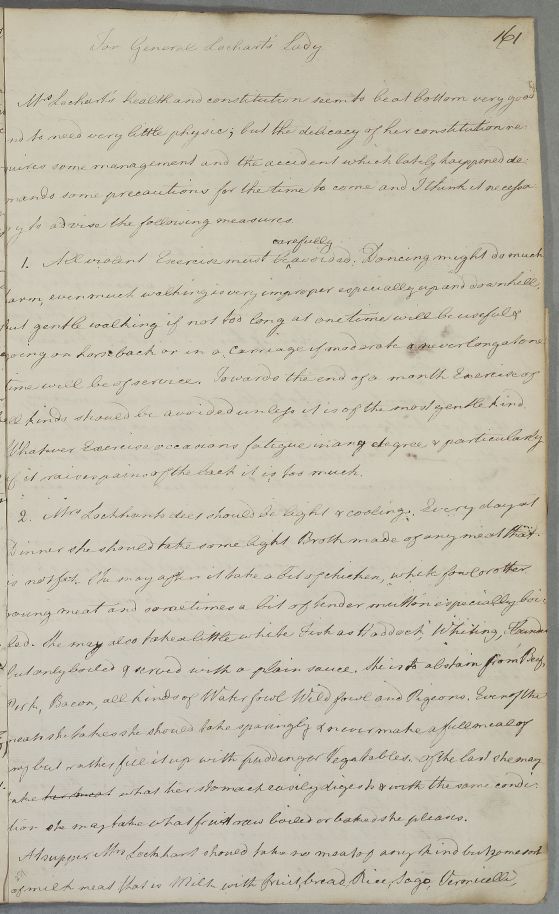 161
For General Lochart's Lady
Mrs Locharts health and constitution seem to be at bottom very good
nd to need very little physic; but the delicacy of her constitution re-
quires some management and the accident which lately happened de-
mands some precautions for the time to come and I think it necessa-
ry to advise the following measures.
carefully
1. All violent Exercise must be avoided. Dancing might do much
harm, even much walking is very improper especially up and down hill.
But gentle walking if not too long at one time will be useful &
going on horseback or in a carriage if moderate & never long at one
time will be of service. Towards the end of a month Exercise of
all kinds should be avoided unless it is of the most gentle kind
Whatever Exercise occasions fatigue in any degree & particularly
if it raises pains of the back it is too much.
2. Mrs Lockharts diet should be light & cooling. Every day at
Dinner she should take some light Broth made of any meat that
is not fat. She may after it take a bit of chicken, white fowl or other
young meat and sometimes a bit of tender mutton especially boi-
led. She may also take a little white Fish as Haddock Whiting, Flounder
but only boiled & served with a plain sauce. She is to abstain from Beef,
Pork, Bacon, all kinds of Water fowl Wild fowl and Pigeons. Even of the
meats she takes she should take sparingly & never make a full meal of
any but rather fill it up with pudding or Vegatables. Of the last she may
take what her stomach easily digests & with the same condi-
tion she may take what fruit raw boiled or baked she pleases.
At supper, Mrs Lockhart should take no meat of any kind but some sort
of milk meat that is Milk with fruit, bread, Rice, Sago, Vermicelli,